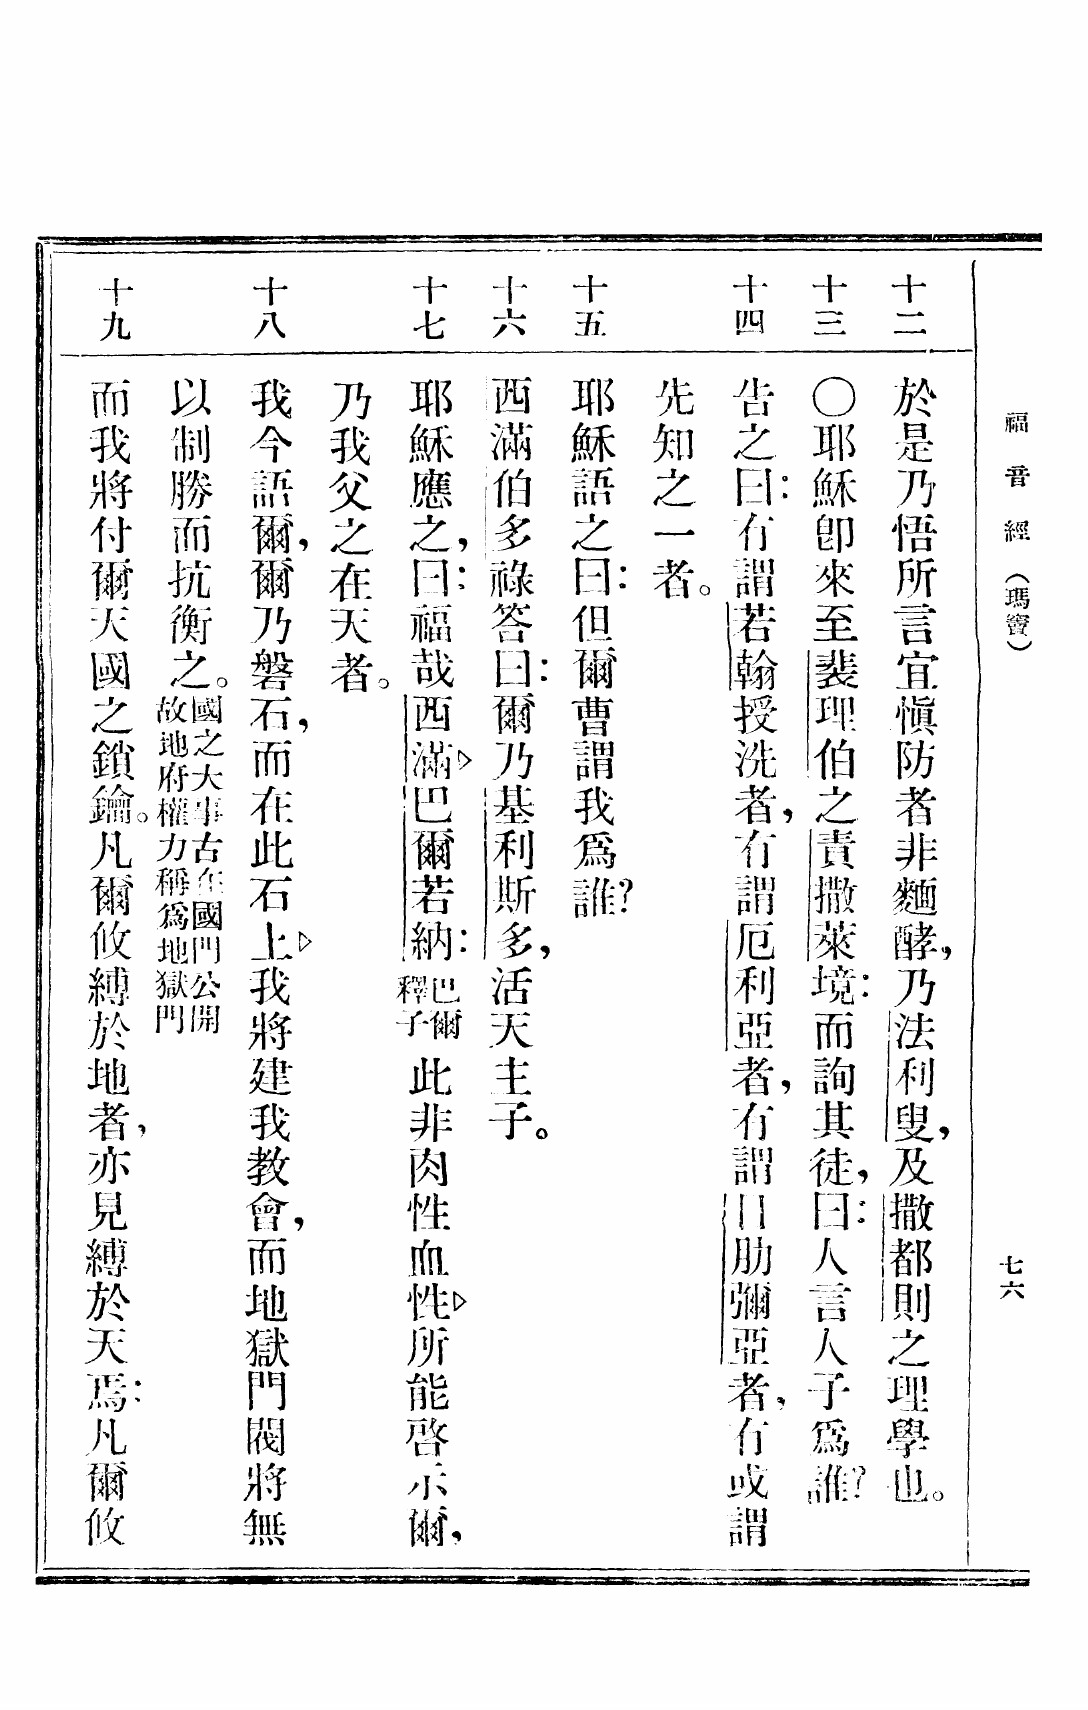 福音經（瑪竇）　七六
十二　於是乃悟所言宜愼防者非麵酵，乃法利叟，及撒都則之理學也。
十三　〇耶穌卽來至裴理伯之責撒萊境：而詢其徒，曰：人言人子爲誰？
十四　告之曰：有謂若翰授洗者，有謂厄利亞者，有謂日肋彌亞者，有或謂
先知之一者。
十五　耶穌語之曰：但爾曹謂我爲誰？
十六　西滿伯多祿答曰：爾乃基利斯多，活天主子。
十七　耶穌應之，曰：福哉西滿▷巴爾若納：巴爾釋子此非肉性血性▷所能啓示爾，
乃我父之在天者。
十八　我今語爾，爾乃磐石，而在此石上▷我將建我教會，而地獄門閥將無
以制勝而抗衡之。國之大事古在國門公開故地府權力稱爲地獄門
十九　而我將付爾天國之鎖鑰。凡爾攸縛於地者，亦見縛於天焉：凡爾攸